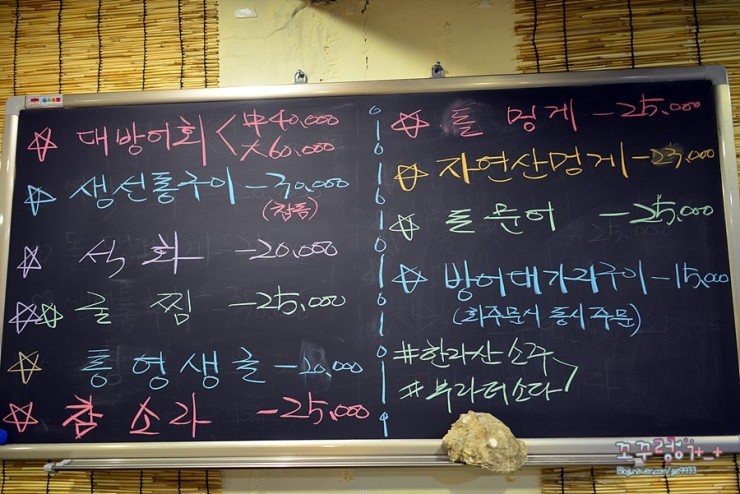 ☆ 대방어회 < 中 40,000
大 60,000
☆ 생선통구이 - 30,000
(참돔)
☆ 석화 - 20,000
☆☆ 굴찜 - 25,000
☆ 통영생굴 - 20,000
☆ 참소라 - 25,000
☆ 돌 멍게 - 25,000
☆ 자연산멍게 - 25,000
☆ 돌문어 - 25,000
☆ 방어대가리구이 - 15,000
(회주문시 동시주문)
#한라산소주
#부라더소다
꼬꾸랭이+_+